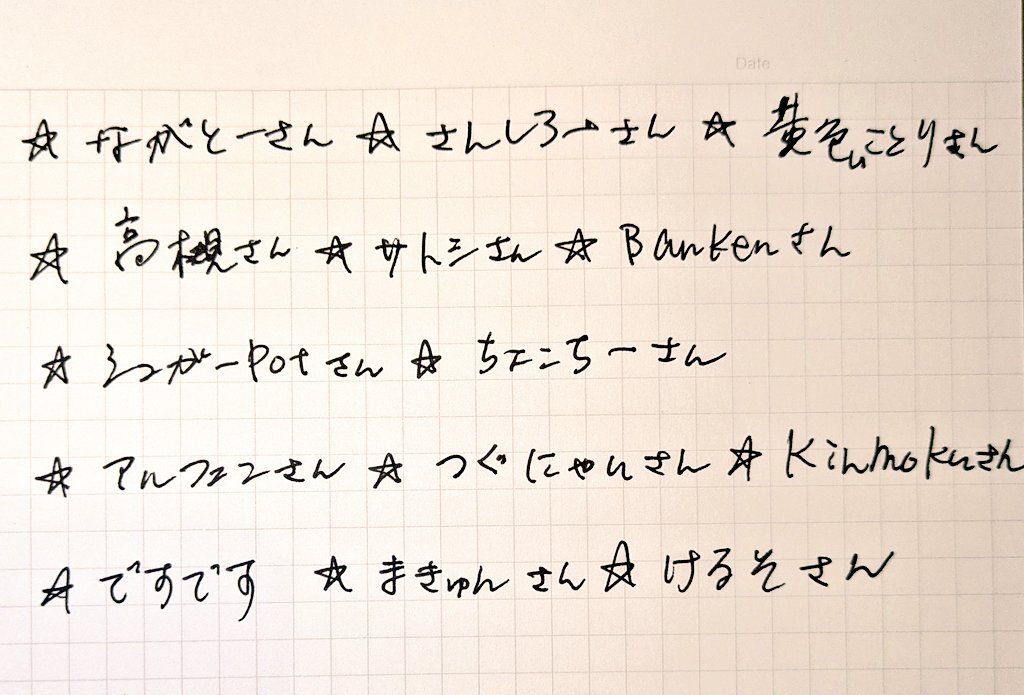 Date
☆ ながとーさん ☆ さんしろーさん ☆ 黄色いことりさん
☆ 高槻さん ☆ サトシさん ☆ Bankenさん
☆ シュガーPotさん ☆ ちょこちーさん
☆ アルフェンさん ☆ つぐにゃんさん ☆ Kinmokuさん
☆ ですです ☆ まきゅんさん ☆ けるそさん